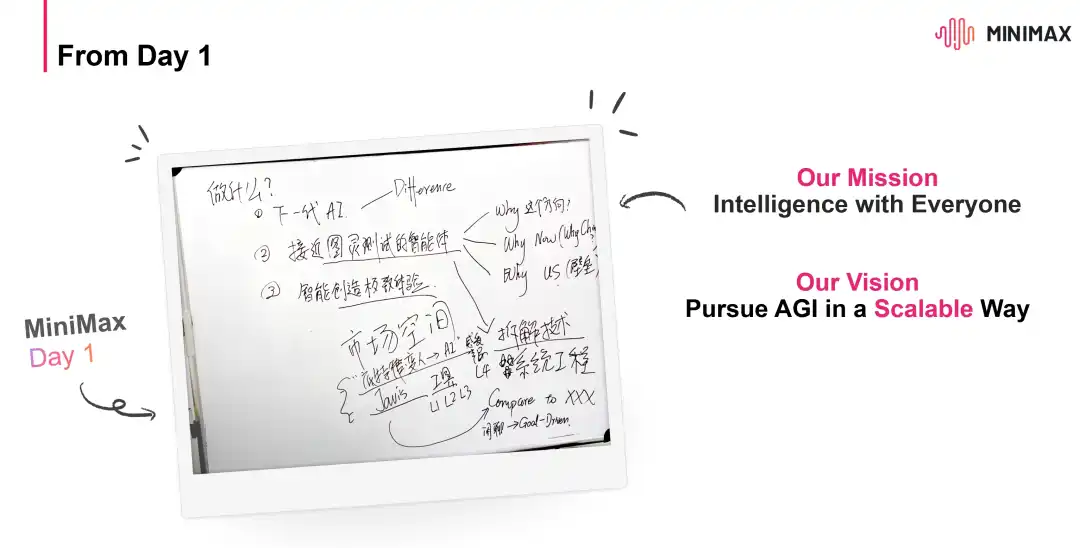 From Day 1
MINIMAX
做什么?
① 下一代 AI.
Difference
② 接近图灵测试的智能体
Why 这个方向?
Why Now (Why Cha
Why US (壁垒
③ 智能创造极致体验.
市场空间
变人→AI
Javis 工具
L1 L2 L3
L4
拆解技术
系统工程
Compare to XXX
闲聊→Goal-Driven.
MiniMax
Day 1
Our Mission
Intelligence with Everyone
Our Vision
Pursue AGI in a Scalable Way